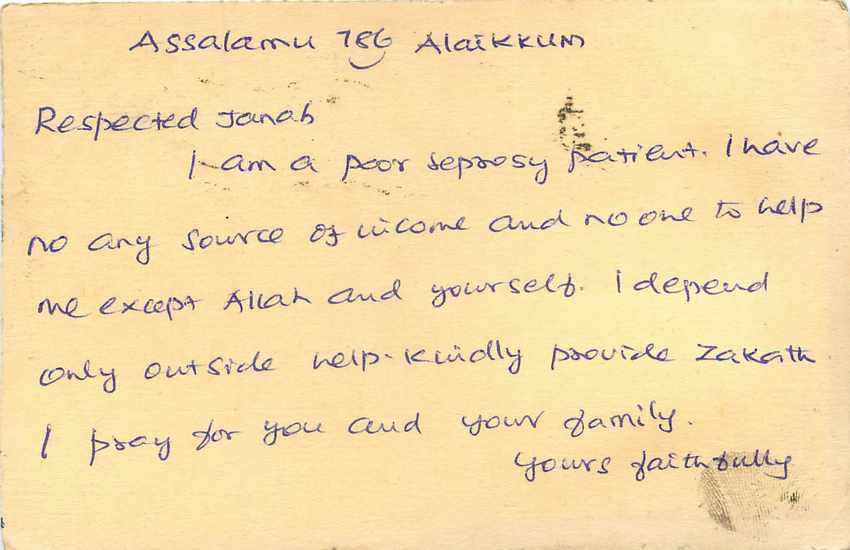 Assalamu 786 Alaikkum
Respected Janab
I am a poor seprosy patient. I have
no any source of income and no one to help
me except Allah and yourself. I depend
only outside help. Kindly provide Zakath.
I pray for you and your family.
Yours faithfully